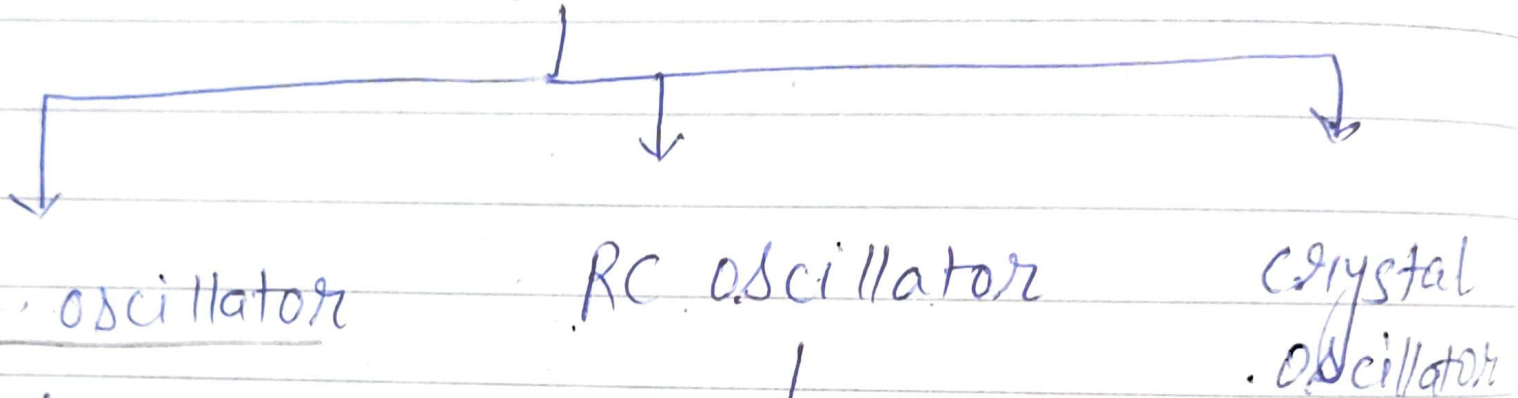 oscillator
RC oscillator
crystal
oscillator